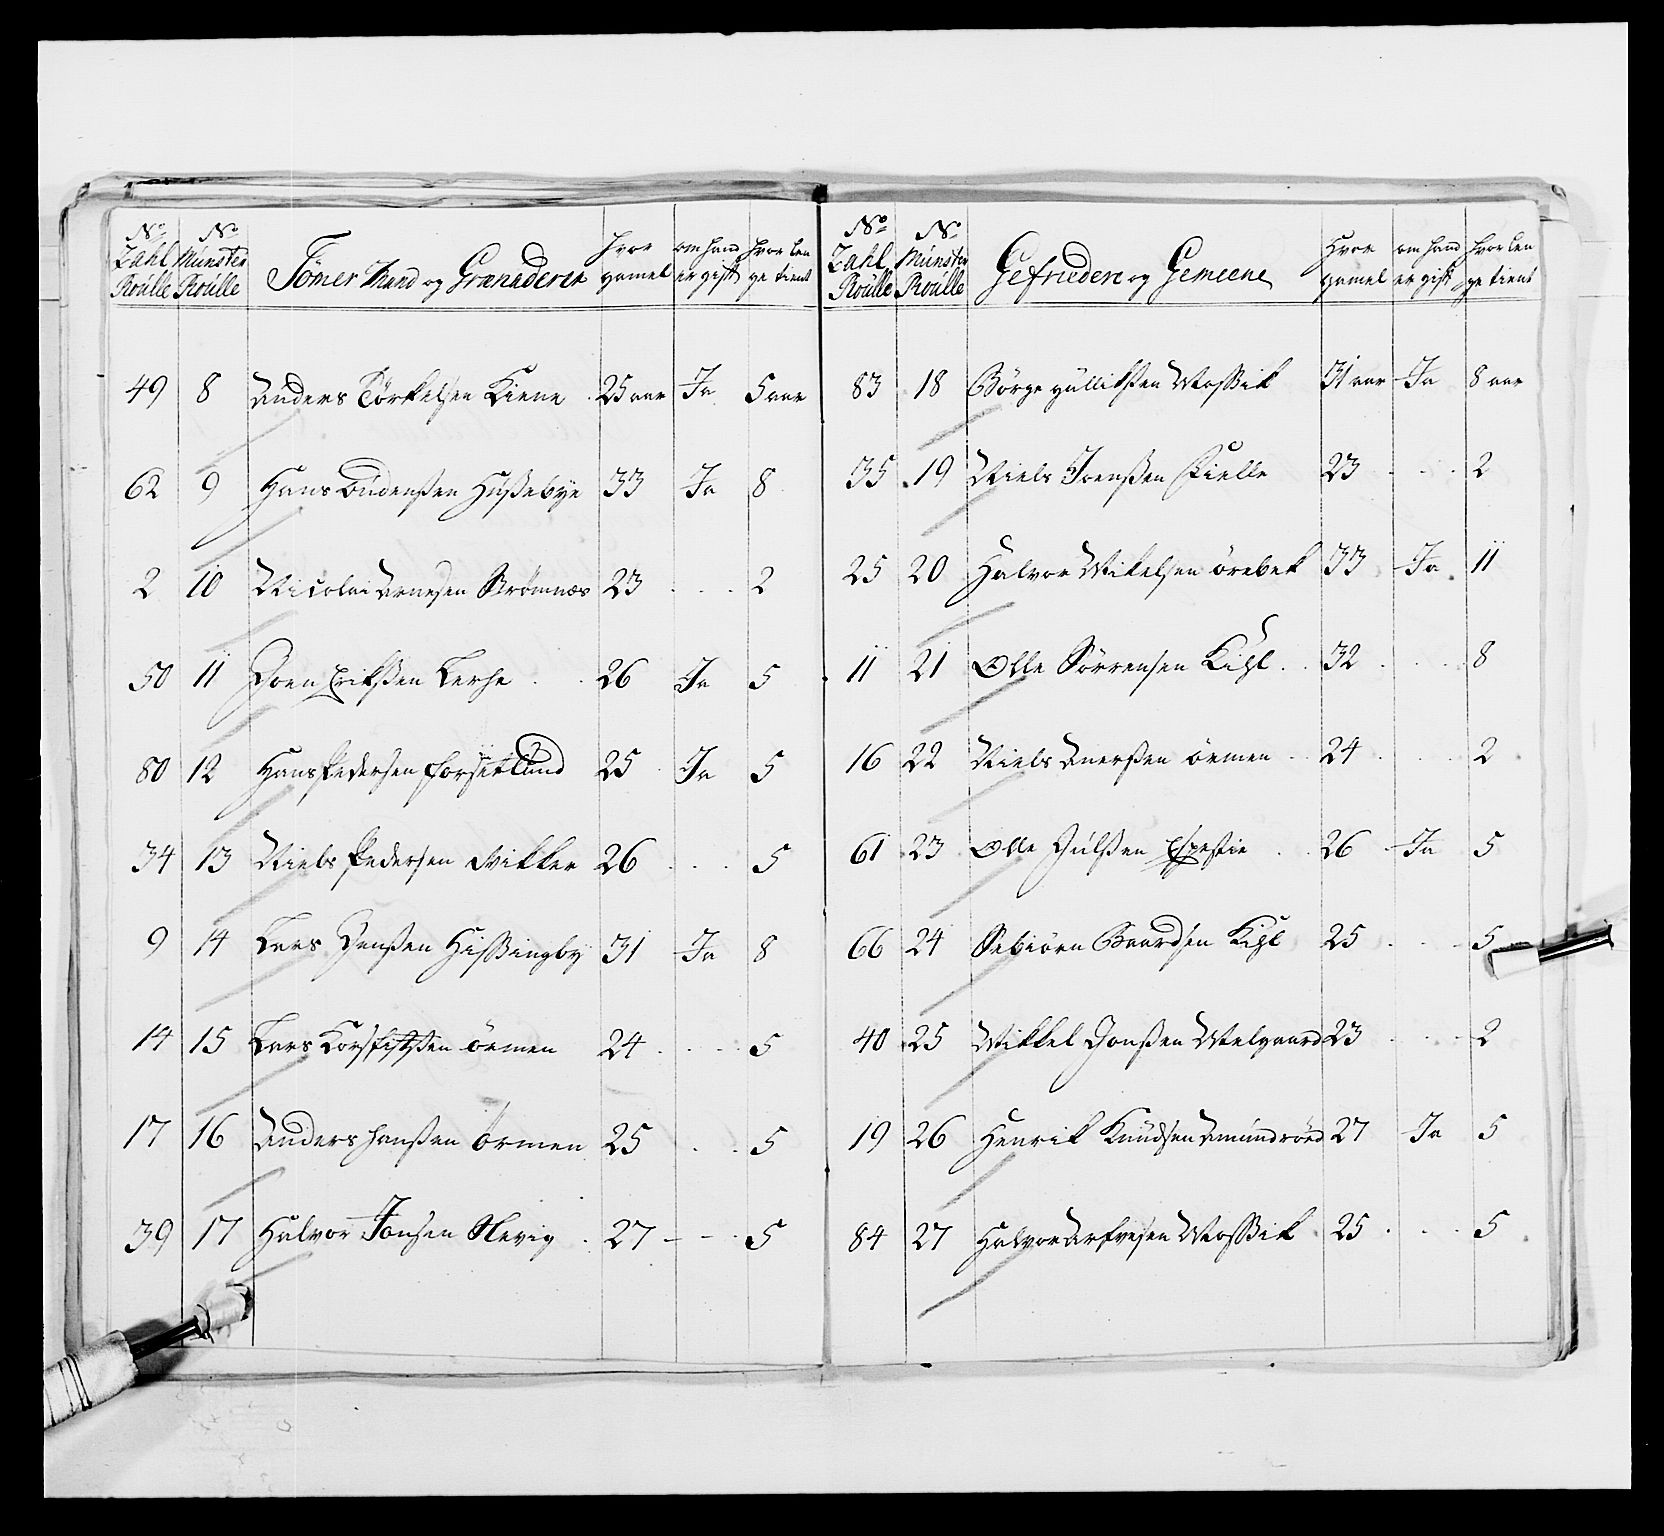 No Zahl Roulle No Münster Roulle Tömer Mand og Granaderer hvor gamel om hand er gift hvor len ge tient
49 8 Anders Törkelsen Kiene 25 aar Ja 5 aar
62 9 Hans Oudenssen Hussebye 33 Ja 8
2 10 Nicolai Arnesen Strömnæs 23 2
50 11 Joen Erikssen Lerhe 26 Ja 5
80 12 Hans Pedersen Forsetlund 25 Ja 5
34 13 Niels Pedersen Vikker 26 5
9 14 Lars Jenssen Hissingby 31 Ja 8
14 15 Lars örmen 24 5
17 16 Anders Hanssen Örmen 25 5
39 17 Halvor Jonsen Nevig 27 5
No Zahl Roulle No Münster Roulle Gefriedere og Gemeene Hvor gamel om hand er gift hvor len ge tient
83 18 Börge gullikssen Mossik 31 aar Ja 8 aar
35 19 Niels Joenssen Fielle 23 2
25 20 Halvor Mikelsen örebek 33 Ja 11
11 21 Olle Sörrensen Kihl 32 8
16 22 Niels Anerssen örmen 24 2
61 23 Olle Julssen 26 Ja 5
66 24 Sebiörn Baardsen Kihl 25 5
40 25 Mikkel Jonssen Melgaard 23 2
19 26 Henrik Knudsen Amundröed 27 Ja 5
84 27 Halvor Arfvesen Mossik 25 5